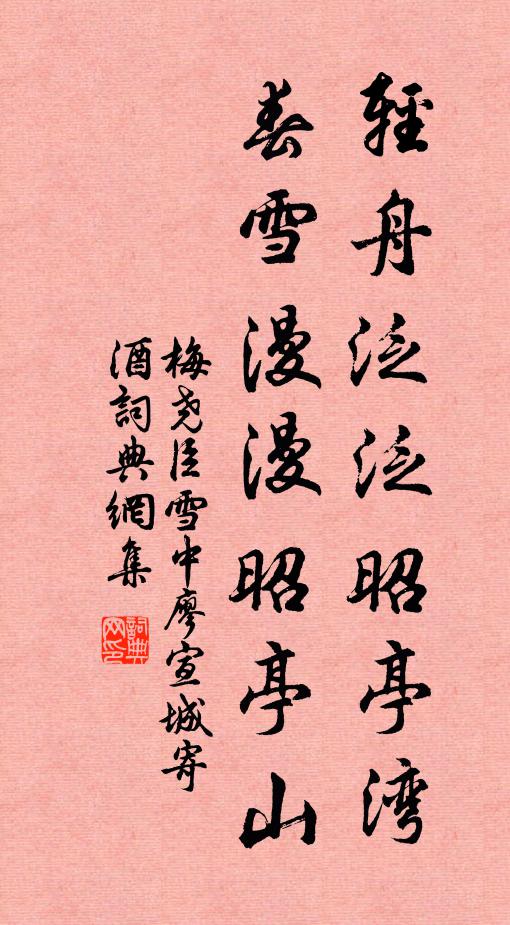 輕舟泛泛昭亭灣
春雪漫漫昭亭山
梅尧臣雪中廖宣城寄
酒詞典網集
詞典
网印